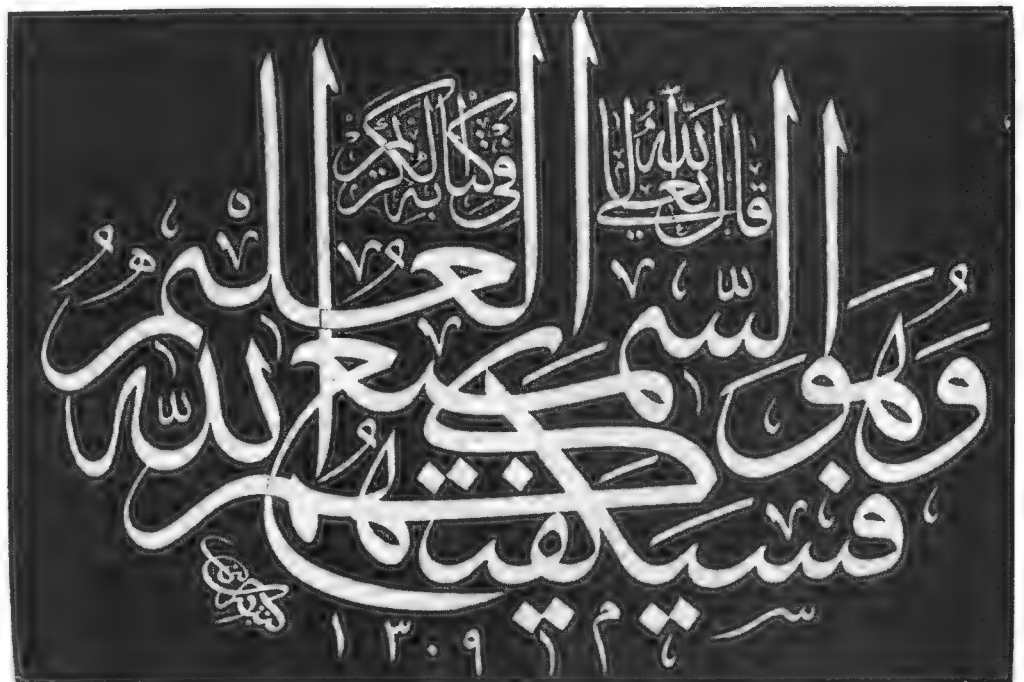 قال الله تعالى في كتابه الكريم
فسيكفيكهم الله
وهو السميع العليم
١٣٠٩